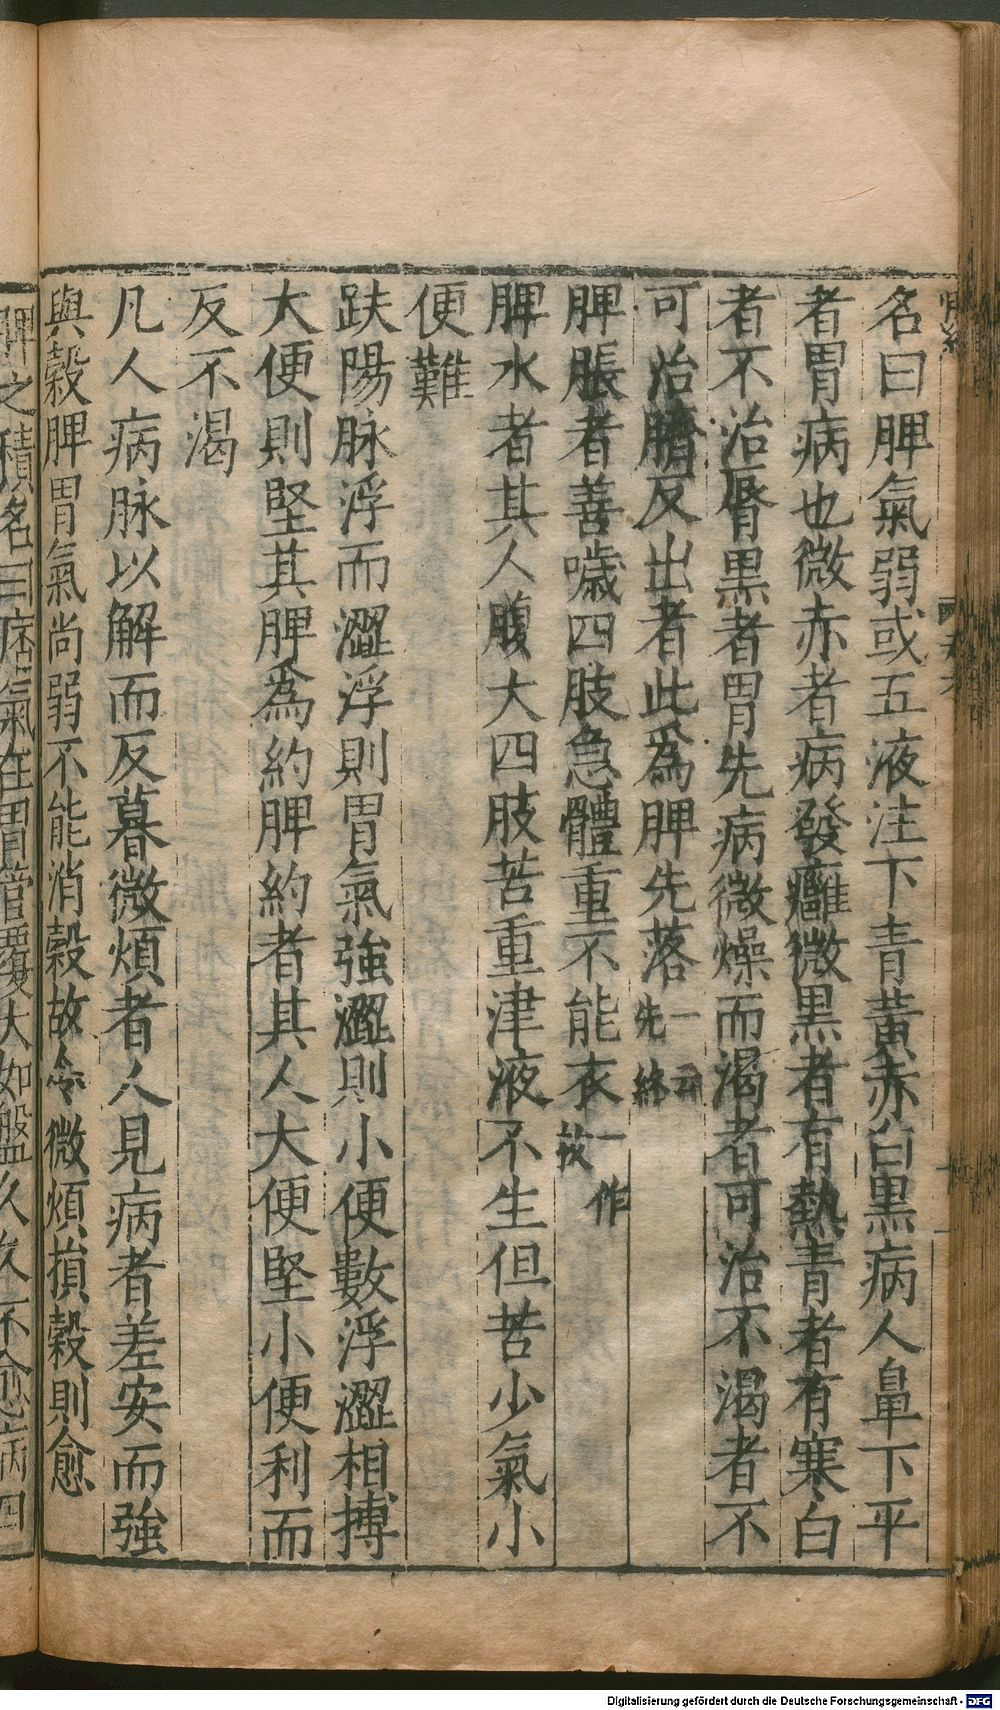 名曰脾氣弱或五液注下青黃赤白黑病人鼻下平
者胃病也微赤者病發癰微黑者有熱青者有寒白
者不治唇黑者胃先病微燥而渴者可治不渴者不
可治臍反出者此爲脾先落一云先終
脾脹者善噦四肢急體重不能衣一作收
脾水者其人腹大四肢苦重津液不生但苦少氣小
便難
趺陽脉浮而澀浮則胃氣強澀則小便數浮澀相搏
大便則堅其脾爲約脾約者其人大便堅小便利而
反不渴
凡人病脉以解而反暮微煩者人見病者差安而強
與穀脾胃氣尚弱不能消穀故令微煩損穀則愈
脾之積名曰痞氣在胃管覆大如盤久久不愈病四
Digitalisierung gefördert durch die Deutsche Forschungsgemeinschaft - DFG